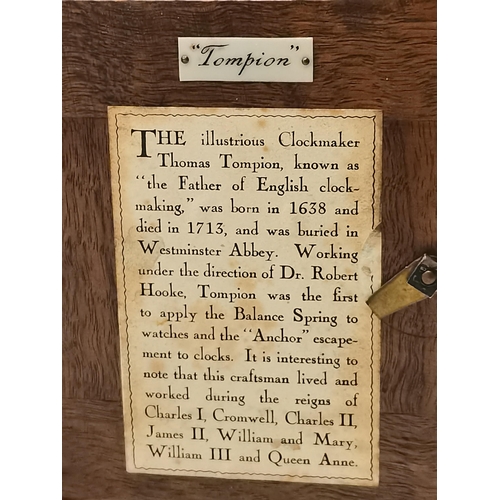 "Tompion"
THE illustrious Clockmaker
Thomas Tompion, known as
"the Father of English clock-
making," was born in 1638 and
died in 1713, and was buried in
Westminster Abbey. Working
under the direction of Dr. Robert
Hooke, Tompion was the first
to apply the Balance Spring to
watches and the "Anchor" escape-
ment to clocks. It is interesting to
note that this craftsman lived and
worked during the reigns of
Charles I, Cromwell, Charles II,
James II, William and Mary,
William III and Queen Anne.